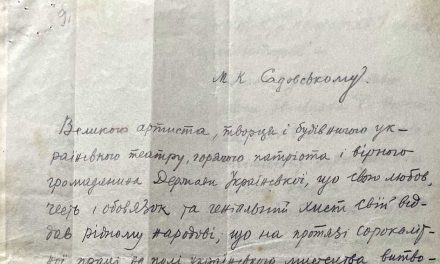 91
М. К. Садовському.
Великого артиста, творца і будівничого ук-
раїнського театру, горячого патріота і вірного
громадянина Держави Української, що свою любов,
честь і обовязок та геніальний хист свій від-
дав рідному народові, що на протязі сорокаліт-
ньої праці на полі українського мистецтва витво-